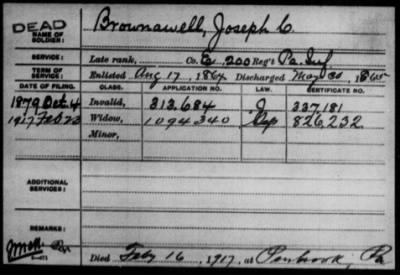 DEAD
NAME OF SOLDIER: Brownawell, Joseph C.
SERVICE: Late rank, Co. E, 200 Reg't Pa. Inf
TERM OF SERVICE: Enlisted Aug 17, 1864 Discharged May 30, 1865
DATE OF FILING. CLASS. APPLICATION NO. LAW. CERTIFICATE NO.
1879 Oct 4 Invalid, 313,684 337,181
1917 Feb 23 Widow, 1094340 826,232
Minor,
ADDITIONAL SERVICES:
REMARKS:
Died Feby 16, 1917, at Penbrook, Pa